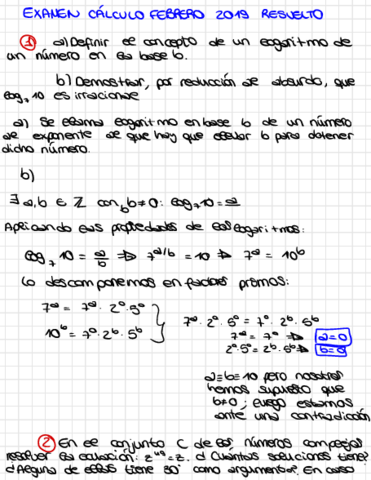 EXAMEN CÁLCULO FEBRERO 2019 RESUELTO
① a) Definir el concepto de un logaritmo de
un número en la base b.
b) Demostrar, por reducción al absurdo, que
log₇ 10 es irracional
a) Se llama logaritmo en base b de un número
al exponente al que hay que elevar b para obtener
dicho número.
b)
∃ a, b ∈ Z con b ≠ 0 : log₇ 10 = a/b
Aplicando las propiedades de los logaritmos:
log₇ 10 = a/b ⇒ 7^(a/b) = 10 ⇒ 7^a = 10^b
Lo descomponemos en factores primos:
7^a = 7^a · 2^0 · 5^0
10^b = 7^0 · 2^b · 5^b
7^a · 2^0 · 5^0 = 7^0 · 2^b · 5^b
7^a = 7^0 ⇒ a=0
2^0 · 5^0 = 2^b · 5^b ⇒ b=0
a=b=0 pero nosotros
hemos supuesto que
b≠0, luego estamos
ante una contradicción
② En el conjunto C de los números complejos
resolver la ecuación: z^49 = z. ¿Cuántas soluciones tiene?
¿Alguna de ellas tiene 30° como argumento? En caso